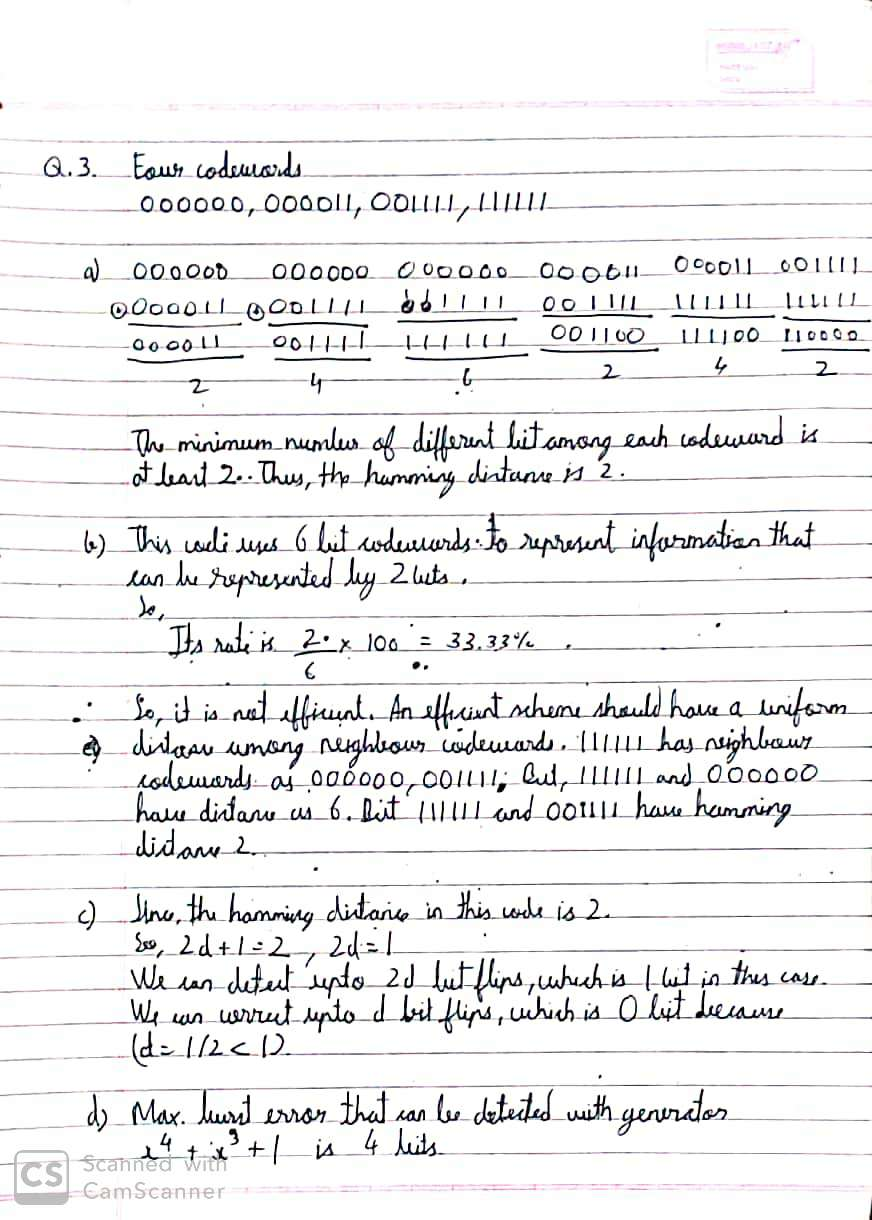 Q.3. Four codewords
000000, 000011, 001111, 111111
a) 000000 000000 000000 000011 000011 001111
⊕000011 ⊕001111 111111 001111 111111 111111
000011 001111 111111 001100 111100 110000
2 4 6 2 4 2
The minimum number of different bit among each codeword is
at least 2. Thus, the hamming distance is 2.
b) This code uses 6 bit codewords to represent information that
can be represented by 2 bits.
So,
Its rate is 2/6 x 100 = 33.33%.
∴ So, it is not efficient. An efficient scheme should have a uniform
distance among neighbour codewords. 111111 has neighbour
codewords as 000000, 001111; But, 111111 and 000000
have distance as 6. But 111111 and 001111 have hamming
distance 2.
c) Since, the hamming distance in this code is 2.
So, 2d+1=2, 2d=1
We can detect upto 2d bit flips, which is 1 bit in this case.
We can correct upto d bit flips, which is 0 bit because
(d=1/2<1).
d) Max. burst error that can be detected with generator
x⁴ + x³ + 1 is 4 bits.
CS Scanned with
CamScanner